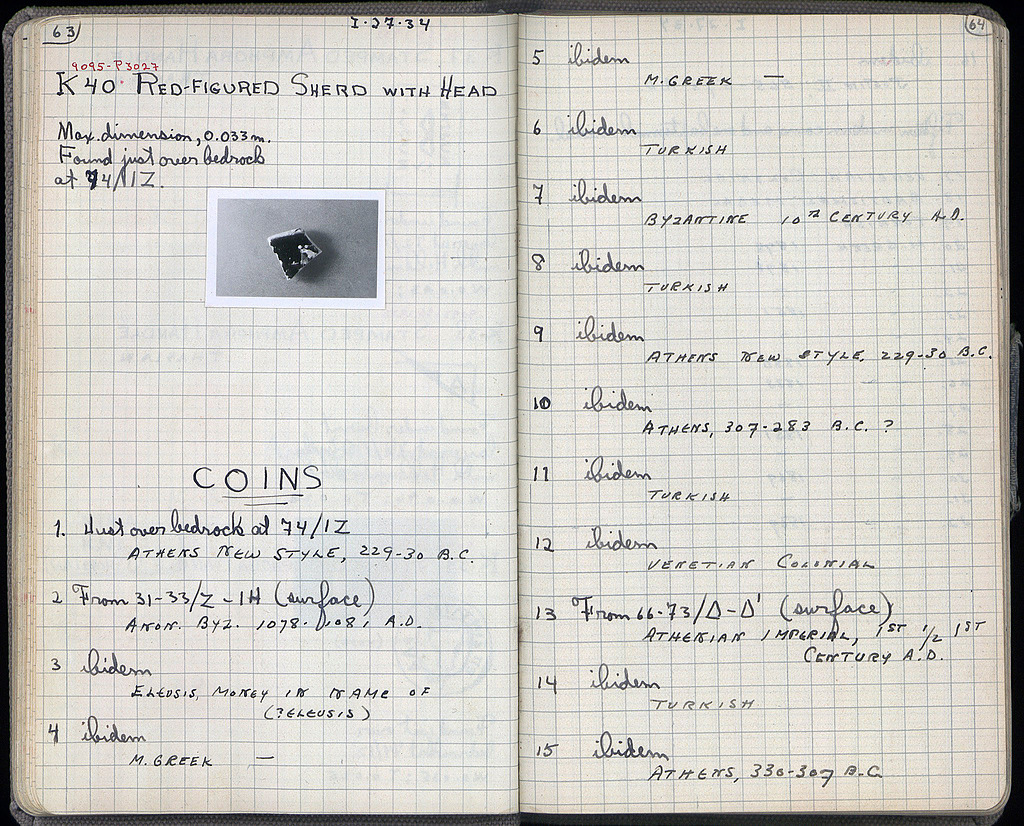 63
I-27-34
9095-P3027
K 40 RED-FIGURED SHERD WITH HEAD
Max. dimension, 0.033 m.
Found just over bedrock
at 74/IZ.
COINS
1. Just over bedrock at 74/IZ
ATHENS NEW STYLE, 229-30 B.C.
2 From 31-33/Z-IH (surface)
ANON. BYZ. 1078-1081 A.D.
3 ibidem
ELEUSIS, MONEY IN NAME OF
(?ELEUSIS)
4 ibidem
M. GREEK —
64
5 ibidem
M. GREEK —
6 ibidem
TURKISH
7 ibidem
BYZANTINE 10TH CENTURY A.D.
8 ibidem
TURKISH
9 ibidem
ATHENS NEW STYLE, 229-30 B.C.
10 ibidem
ATHENS, 307-283 B.C. ?
11 ibidem
TURKISH
12 ibidem
VENETIAN COLONIAL
13 From 66-73/Δ-Δ' (surface)
ATHENIAN IMPERIAL, 1ST 1/2 1ST
CENTURY A.D.
14 ibidem
TURKISH
15 ibidem
ATHENS, 330-307 B.C.